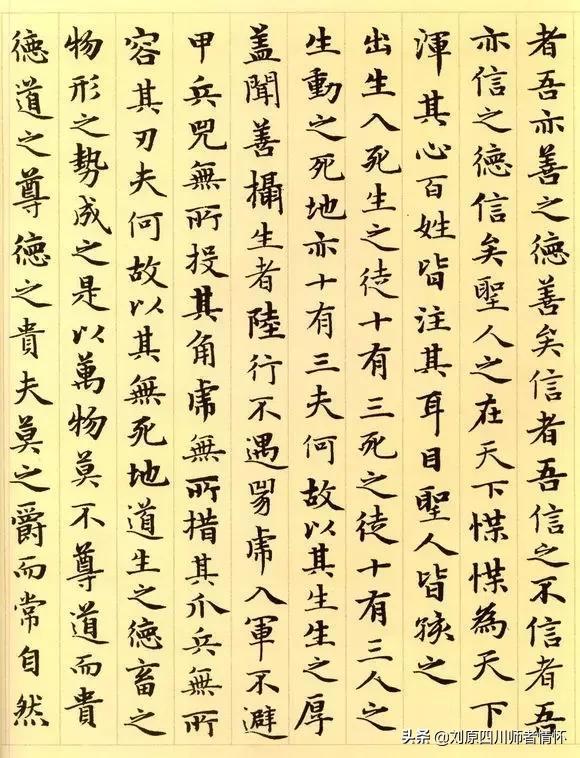 者吾亦善之德善矣信者吾信之不信者吾
亦信之德信矣聖人之在天下惵惵為天下
渾其心百姓皆注其耳目聖人皆孩之
出生入死生之徒十有三死之徒十有三人之
生動之死地亦十有三夫何故以其生生之厚
盖聞善攝生者陸行不遇兕虎入軍不避
甲兵兕無所投其角虎無所措其爪兵無所
容其刃夫何故以其無死地道生之德畜之
物形之勢成之是以萬物莫不尊道而貴
德道之尊德之貴夫莫之爵而常自然
头条 @刘原四川师者情怀